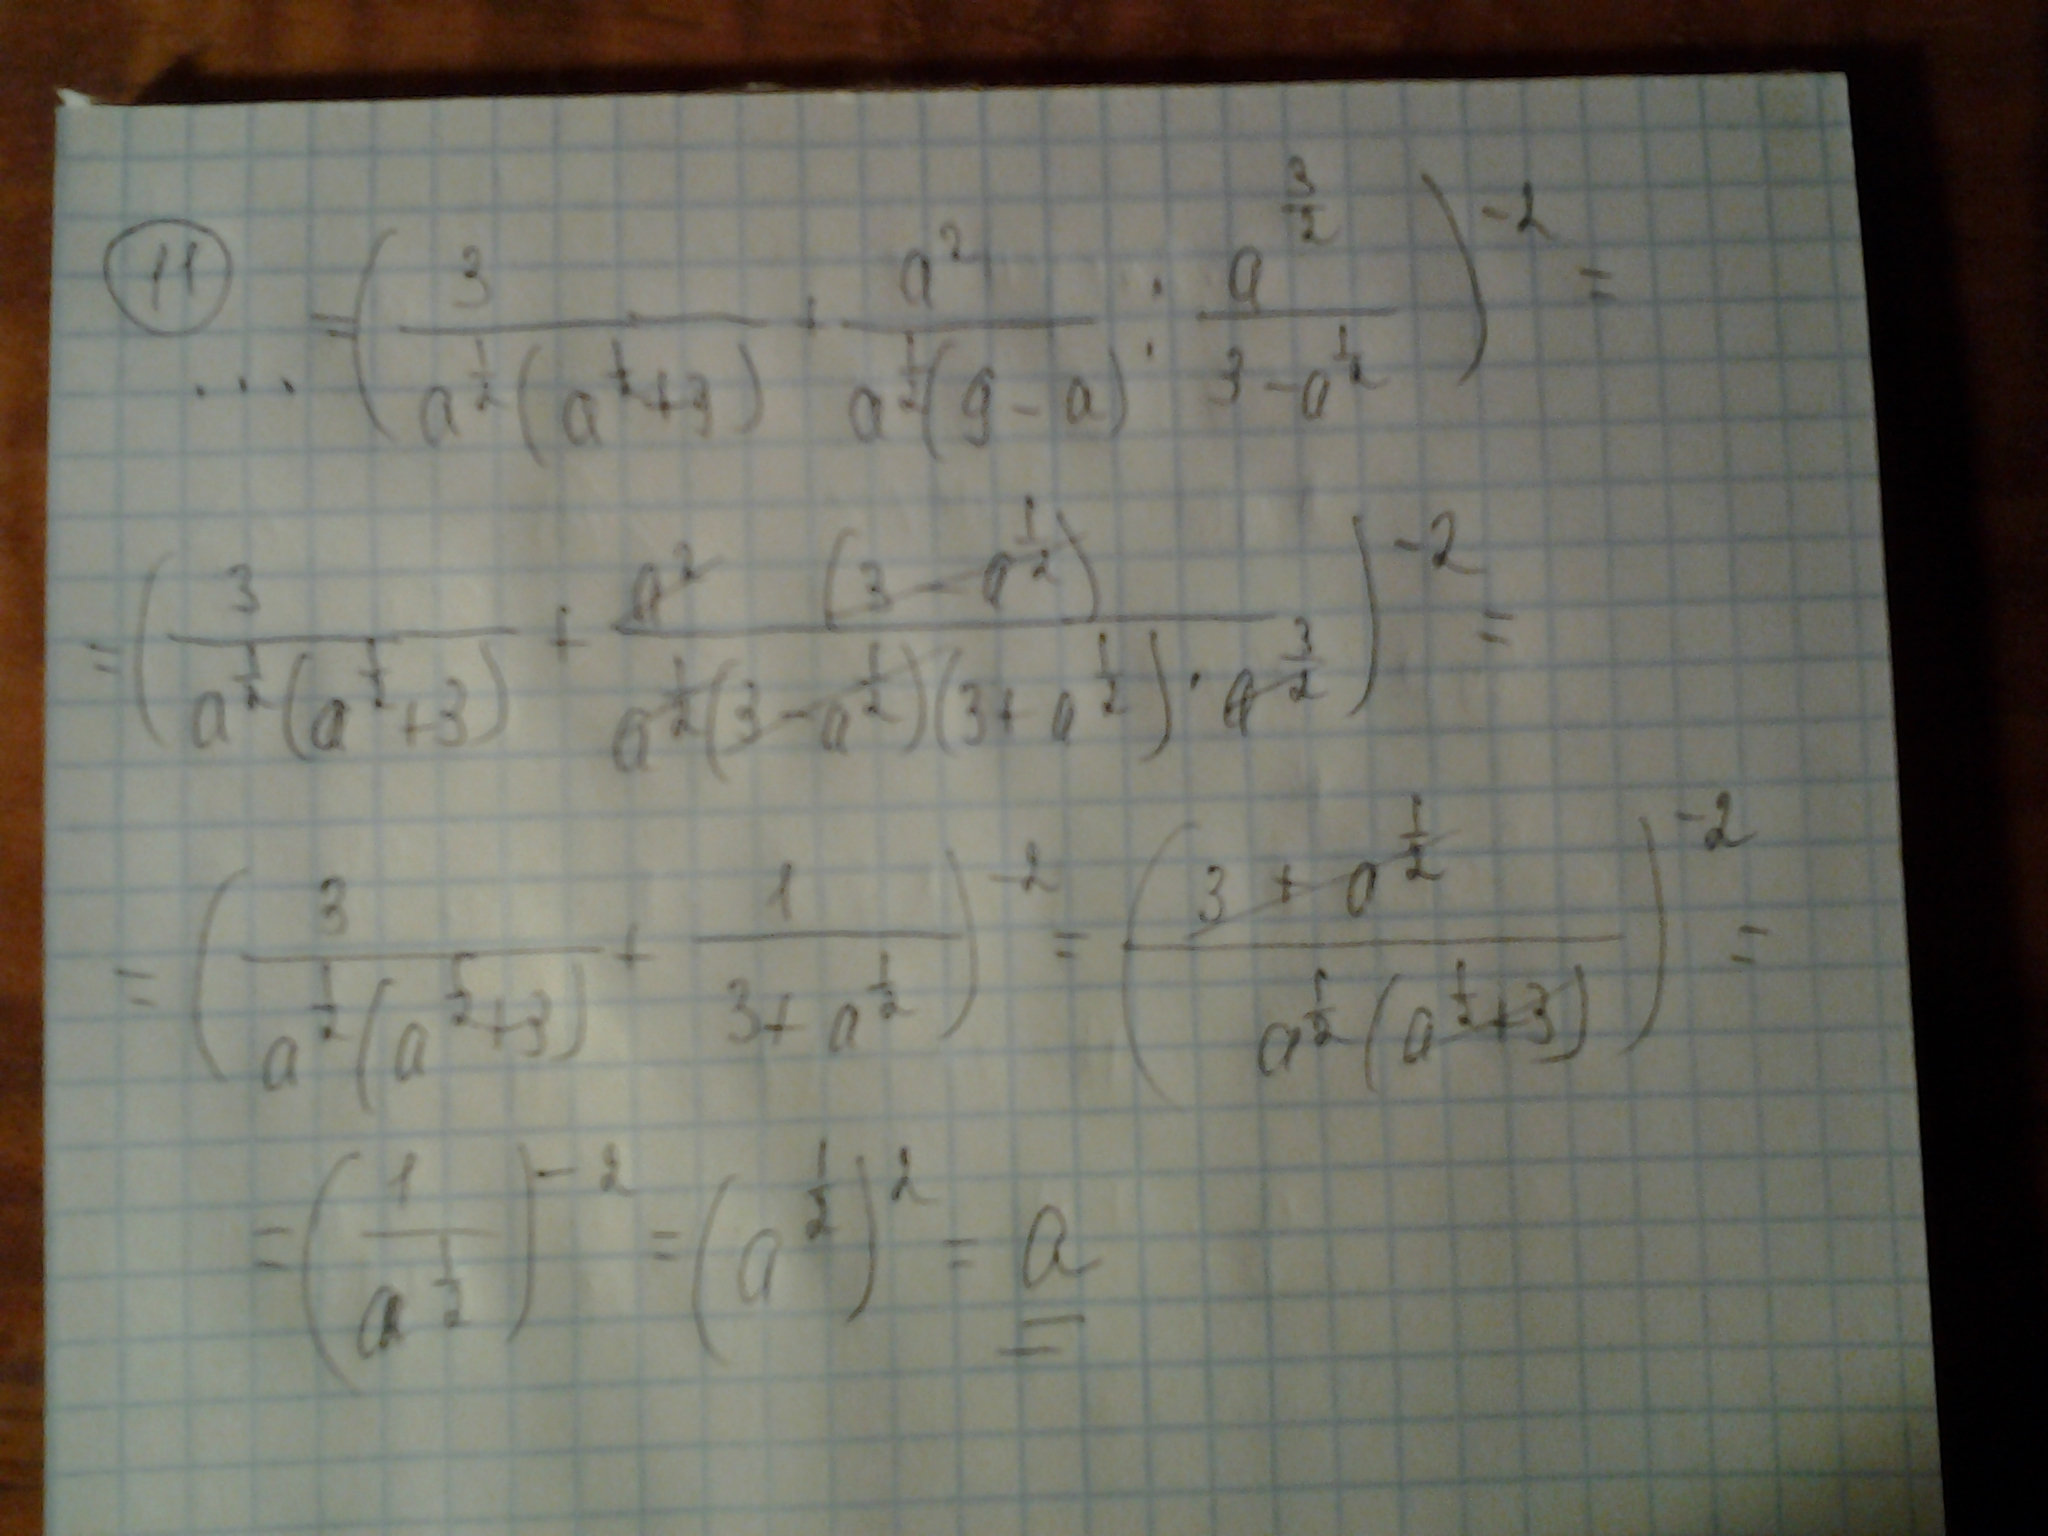 11 ... = ( 3 / (a^(1/2) (a^(1/2) + 3)) + a^2 / (a^(1/2) (9 - a)) : a^(3/2) / (3 - a^(1/2)) )^(-2) =
= ( 3 / (a^(1/2) (a^(1/2) + 3)) + a^2 (3 - a^(1/2)) / (a^(1/2) (3 - a^(1/2)) (3 + a^(1/2)) · a^(3/2)) )^(-2) =
= ( 3 / (a^(1/2) (a^(1/2) + 3)) + 1 / (3 + a^(1/2)) )^(-2) = ( (3 + a^(1/2)) / (a^(1/2) (a^(1/2) + 3)) )^(-2) =
= ( 1 / a^(1/2) )^(-2) = (a^(1/2))^2 = a